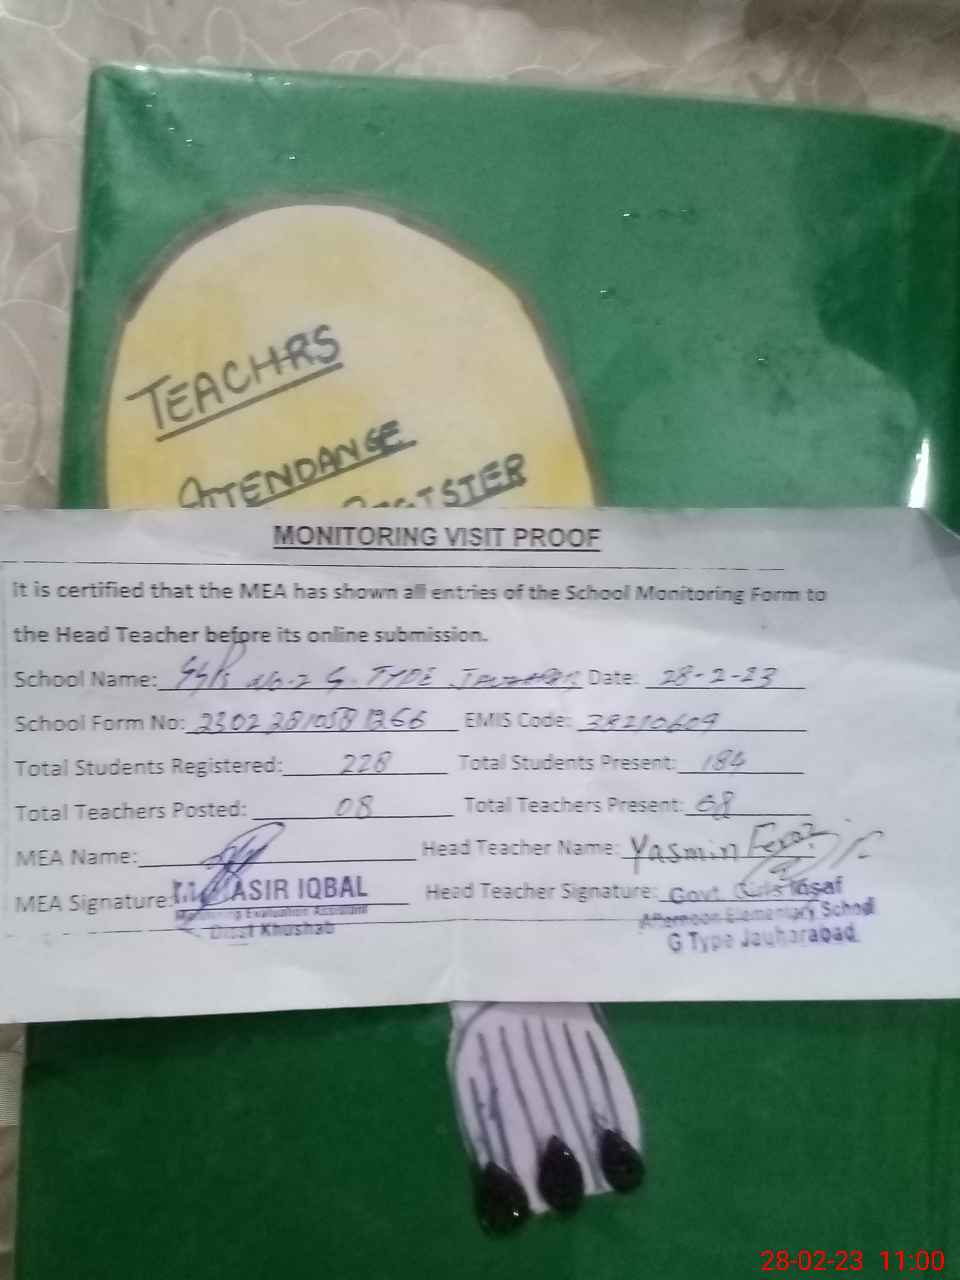 TEACHRS
ATTENDANCE
REGISTER
MONITORING VISIT PROOF
It is certified that the MEA has shown all entries of the School Monitoring Form to
the Head Teacher before its online submission.
School Name: G. TYPE Date: 28-2-23
School Form No: EMIS Code: 38210609
Total Students Registered: 228 Total Students Present: 184
Total Teachers Posted: 08 Total Teachers Present: 08
MEA Name: Head Teacher Name: Yasmin Feroz
MEA Signature: ASIR IQBAL Head Teacher Signature: Govt. Girls Insaf
Monitoring Evaluation Assistant Afternoon Elementary School
Distt Khushab G Type Jauharabad
28-02-23 11:00